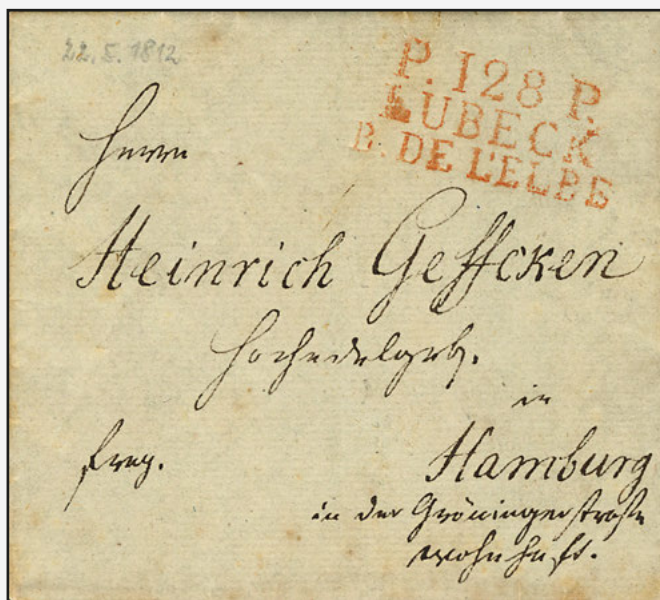 22.5.1812
P. 128 P.
LUBECK
B. DE L'ELBE
Herrn
Heinrich Geffcken
Hochedelgeb.
in
Hamburg
in der Gröningerstraße
wohnhaft.